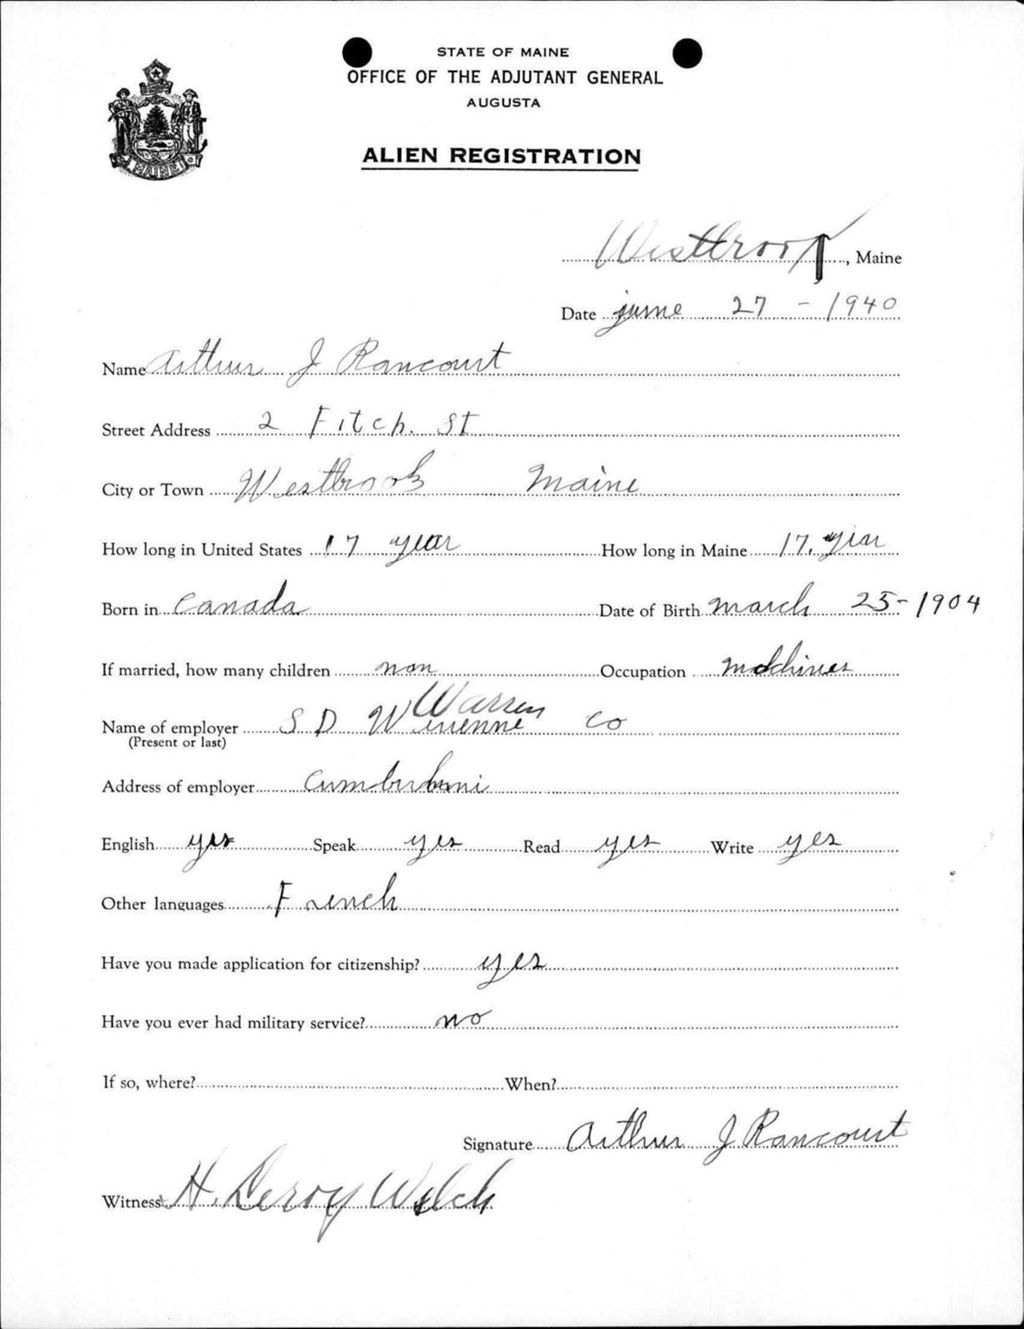 STATE OF MAINE
OFFICE OF THE ADJUTANT GENERAL
AUGUSTA
ALIEN REGISTRATION
MAINE
Westbrook, Maine
Date june 27 - 1940
Name Arthur J Rancourt
Street Address 2 Fitch. St
City or Town Westbrook Maine
How long in United States 17 year How long in Maine 17. year
Born in Canada Date of Birth March 25-1904
If married, how many children non Occupation
Warren
Name of employer S D Co
(Present or last)
Address of employer
English yes Speak yes Read yes Write yes
Other languages French
Have you made application for citizenship? yes
Have you ever had military service? no
If so, where? When?
Signature Arthur J Rancourt
Witness H. Leroy Welch